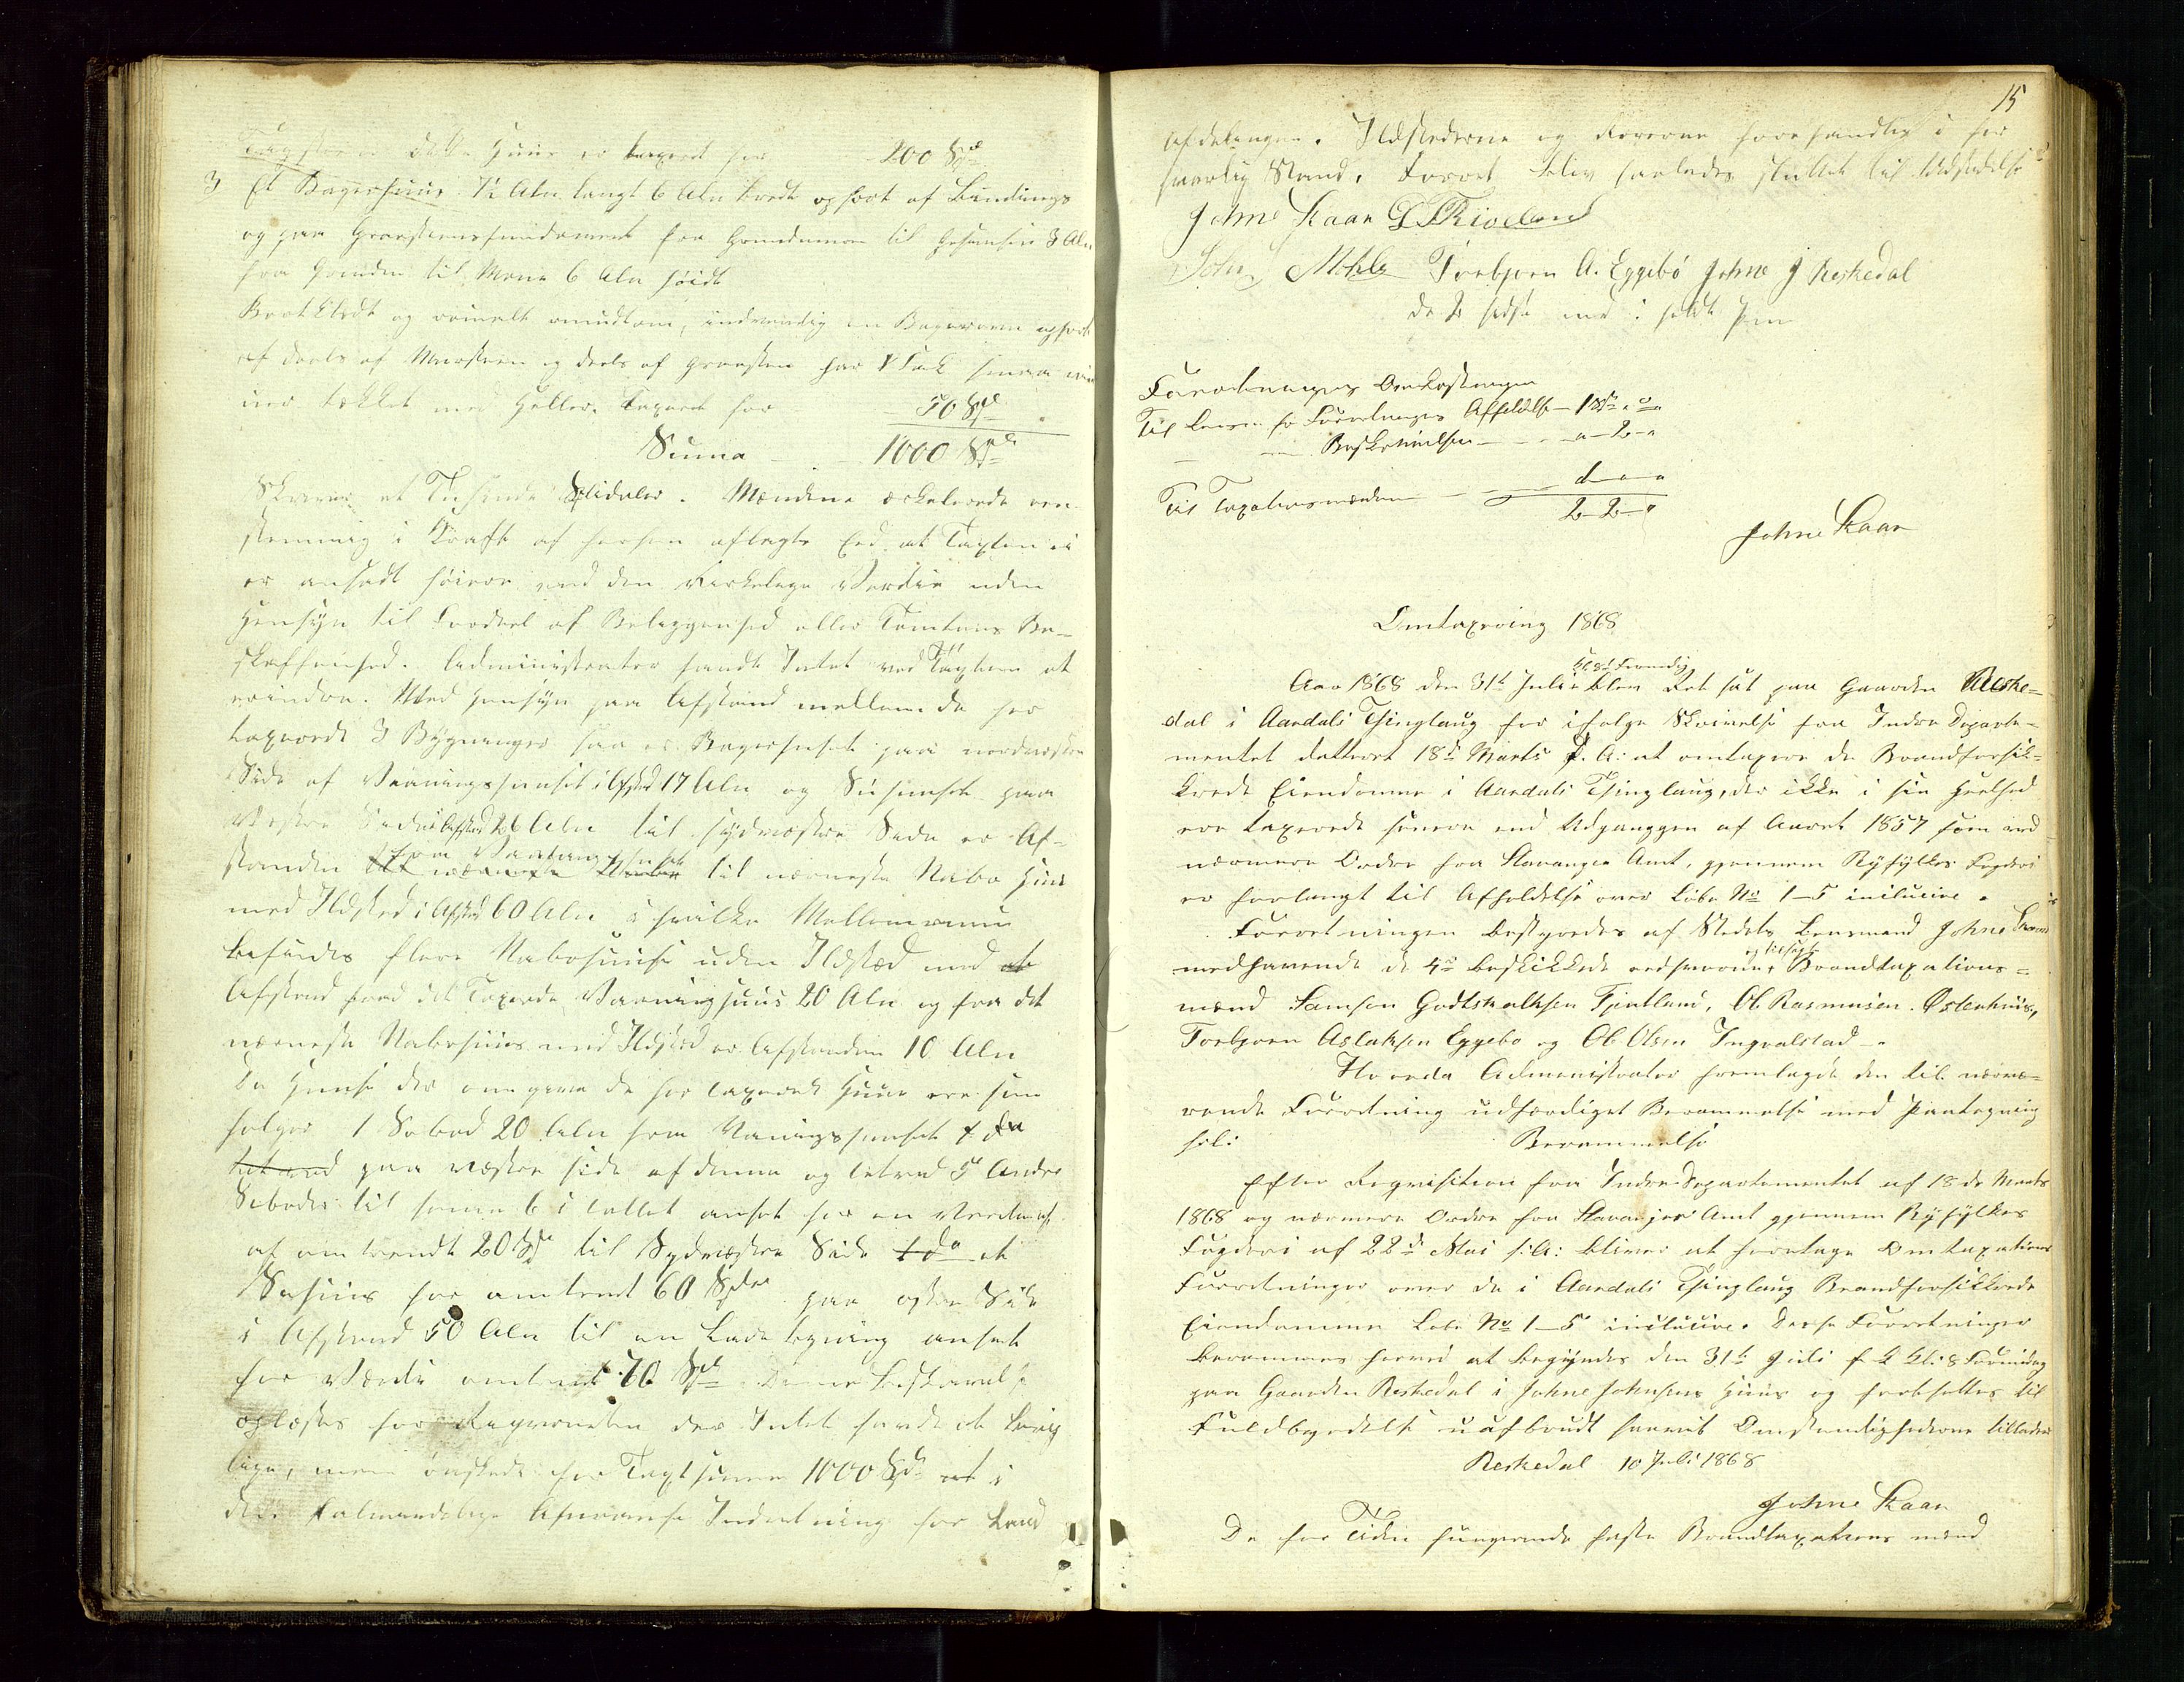 dette Huus er taxeret for 200 Spd
3 Et Bagerhuus 12 Alen langt 6 Alen bredt opført af Bindings
og paa Graasteensfundament fra Grundmuren til Gesimsen 3 Alen
fra Grunden til Mønn 6 Alen høidt
Bordklædt og malt omudtom, indvendig en Bagerovn opført
af deels af Muursteen og deels af Graasteen har 1 Fag smaa
tækket med Heller. Taxeret for 50 Spd
Suma 1000 Spd
Skriver et Tusinde Spesidaler. Mændene erkelærede een-
stemmig i Kraft af forhen aflagte Eed at Taxten ei
er ansadt høiere end den virkelige Værdie uden
Hensyn til Fordeel af Beliggenhed eller Tomtens Be-
skaffenhed. Administrator fandt Intet ved Taxten at
erindre. Med Hensyn paa Afstand mellem de her
taxerede 3 Bygninger saa er Bagerhuset paa nordvestre
Side af Vaaningshuuset i Afstd 17 Alen og Søhuuset paa
Vestre Side i Afstand 26 Alen til sydvestre Side er Af-
standen fra Vaaningshuset til nærmeste Nabo Huus
med Ildsted i Afstd 60 Alen i hvilke Mellemrum
befindes flere Nabohuuse uden Ildsted med
Afstand fra det Taxerede Vaaningshuus 20 Alen og fra det
nærmeste Nabohuus med Ildsted er Afstanden 10 Alen
De Huuse der omgiver de her taxerede Huse ere som
følger 1 Søbod 20 Alen fra Vaaningshuuset
paa vestre side af denne og 5 Andre
Søboder til 6 i tallet anset for en Værdie
af omtrendt 20 Spd til Sydvestre Side et
Søhuus for omtrent 60 Spd paa østre Side
i Afstand 50 Alen til en Ladebygning anseet
for Værdie omtrent 70 Spd. Denne Beskrivelse
oplæstes for Reqvirenten der Intet havde at
men ønskede for Taxtsumen 1000 Spd at i
den almindelige Assurance Indretning for Land
15
afdelingen. Ildstederne og Rørene forefandtes i for
svarlig Stand. Forret. blev saaledes sluttet til Udstedelse
Johne Kaan L. T. Riveland
John Mohle Torbjørn A. Eggebö Johne J Reskedal
de 2 sidste med i holdt Pen
Forretningens Omkostninger
Til Lensm. for Forretningens Affholdelse - 1 Spd
Beskrivelsen - 2 -
Til Taxationsmændene
2 - 2 -
Johne Kaan
Omtaxering 1868
Kl 8 Formidag
Aar 1868 den 31te Juli blev Ret sat paa Gaarden Reske-
dal i Aardals Thinglaug for ifølge Skrivelse fra Indre Departe-
mentet datteret 18de Marts d. A: at omtaxere de Brandforsik-
krede Eiendomme i Aardals Thinglaug, der ikke i sin Heelhed
ere taxerede senere end Udganggen af Aaret 1857 som ved
nærmere Ordre fra Stavanger Amt, gjennem Ryfylkes Fogderi
er forlangt til Afholdelse over Løbe No 1-5 inclucive.
Forretningen bestyredes af Stedets Lensmand Johne Kaan
medhavende de 4re beskikkede eedsvorne, Brandtaxations-
mænd Samson Godtskalksen Fjætland, Ol. Rasmusen Østenhuus,
Torbjørn Aslaksen Eggebø og Ol. Olsen Ingvalstad -.
Hvorda Administrator fremlagde den til nærvæ-
rende Forretning udfærdiget Berammelse med Paategning
sol:
Berammelse
Efter Reqvisition fra Indre Departementet af 18 de Marts
1868 og nærmere Ordre fra Stavanger Amt gjennem Ryfylkes
Fogderi af 22de Mai s: A: bliver at foretage Omtaxations
Forretninger over de i Aardals Thinglaug Brandforsikkrede
Eiendomme Løbe No 1-5 inclucive. Disse Forretninger
berammes herved at begyndes den 31te Juli f. Kl. 8 Formidag
paa Gaarden Reskedal i Johne Johnsens Huus og fortsættes til
Fuldbyrdelse uafbrudt saavit Omstændighederne tillader
Reskedal 10 Juli 1868
Johne Kaan
De for Tiden fungerende faste Brandtaxations mænd